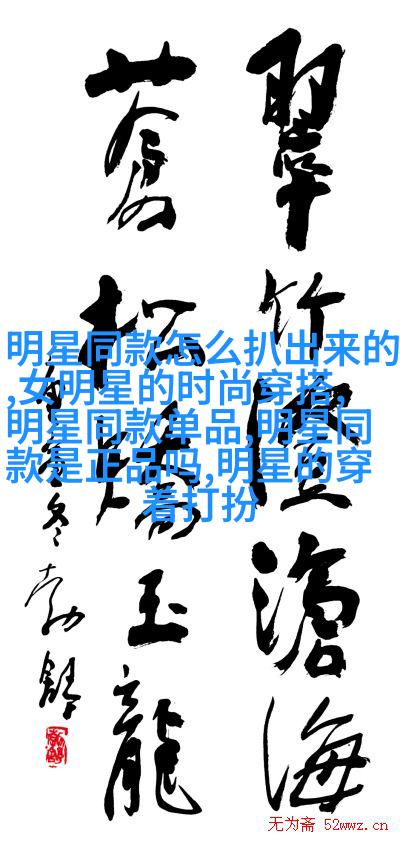 翠竹滄海
蒼松玉龍
冬勃舒
明星同款怎么扒出来的
,女明星的时尚穿搭,
明星同款单品,明星同
款是正品吗,明星的穿
着打扮
无为斋 52wwz.cn